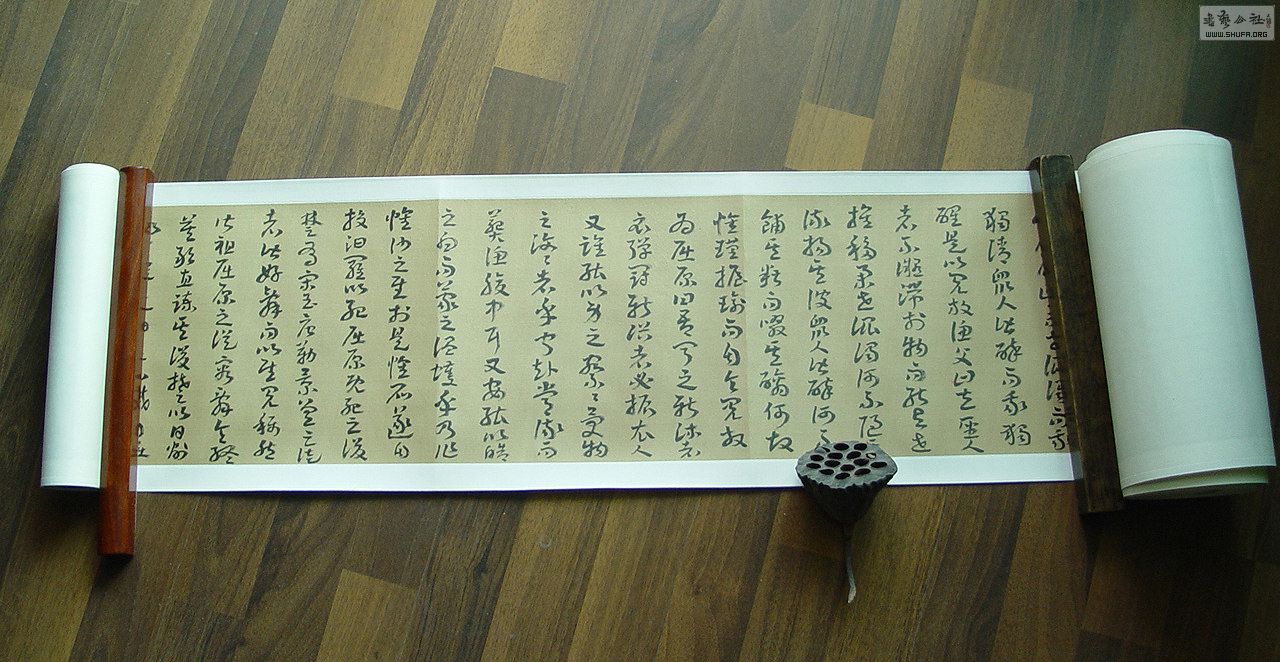 獨清眾人皆醉而我獨
醒是以見放漁父曰夫聖人
者不凝滯於物而能與世
推移舉世混濁何不隨
流揚其波眾人皆醉何不
餔其糟而啜其醨何故
懷瑾握瑜而自令見放
為屈原曰吾聞之新沐
衣彈冠新浴者必振衣人
又誰能以身之察察受物
之汶汶者乎寧赴常流而
葬漁腹中耳又安能以皓
之白而蒙之溫蠖乎乃作
懷沙之賦於是懷石遂自
投汨羅以死屈原既死之後
楚有宋玉唐勒景差之徒
者皆好辭而以賦見稱然
皆祖屈原之從容辭令終
莫敢直諫其後楚以日削
書藝公社
WWW.SHUFA.ORG